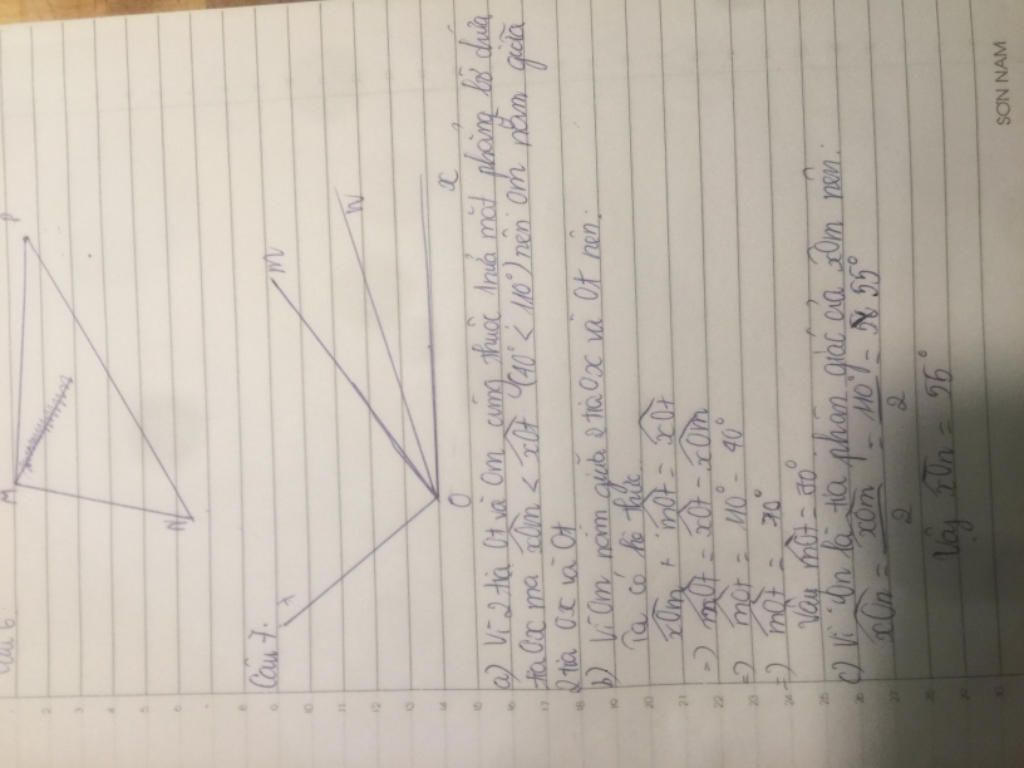 Câu 6
M
P
N
Câu 7.
t
m
n
O
x
a) Vì 2 tia Ot và Om cùng thuộc 1 nửa mặt phẳng bờ chứa
tia Ox mà xOm < xOt (40° < 110°) nên Om nằm giữa
2 tia Ox và Ot
b) Vì Om nằm giữa 2 tia Ox và Ot nên.
Ta có hệ thức
xOm + mOt = xOt
=) mOt = xOt - xOm
=) mOt = 110° - 40°
=) mOt = 70°
Vậy mOt = 70°
c) Vì On là tia phân giác của xOm nên.
xOn = xOm / 2 = 110° / 2 = 55°
Vậy xOn = 56°
SƠN NAM
2
3
4
5
6
7
8
9
10
11
12
13
14
15
16
17
18
19
20
21
22
23
24
25
26
27
28
29
30